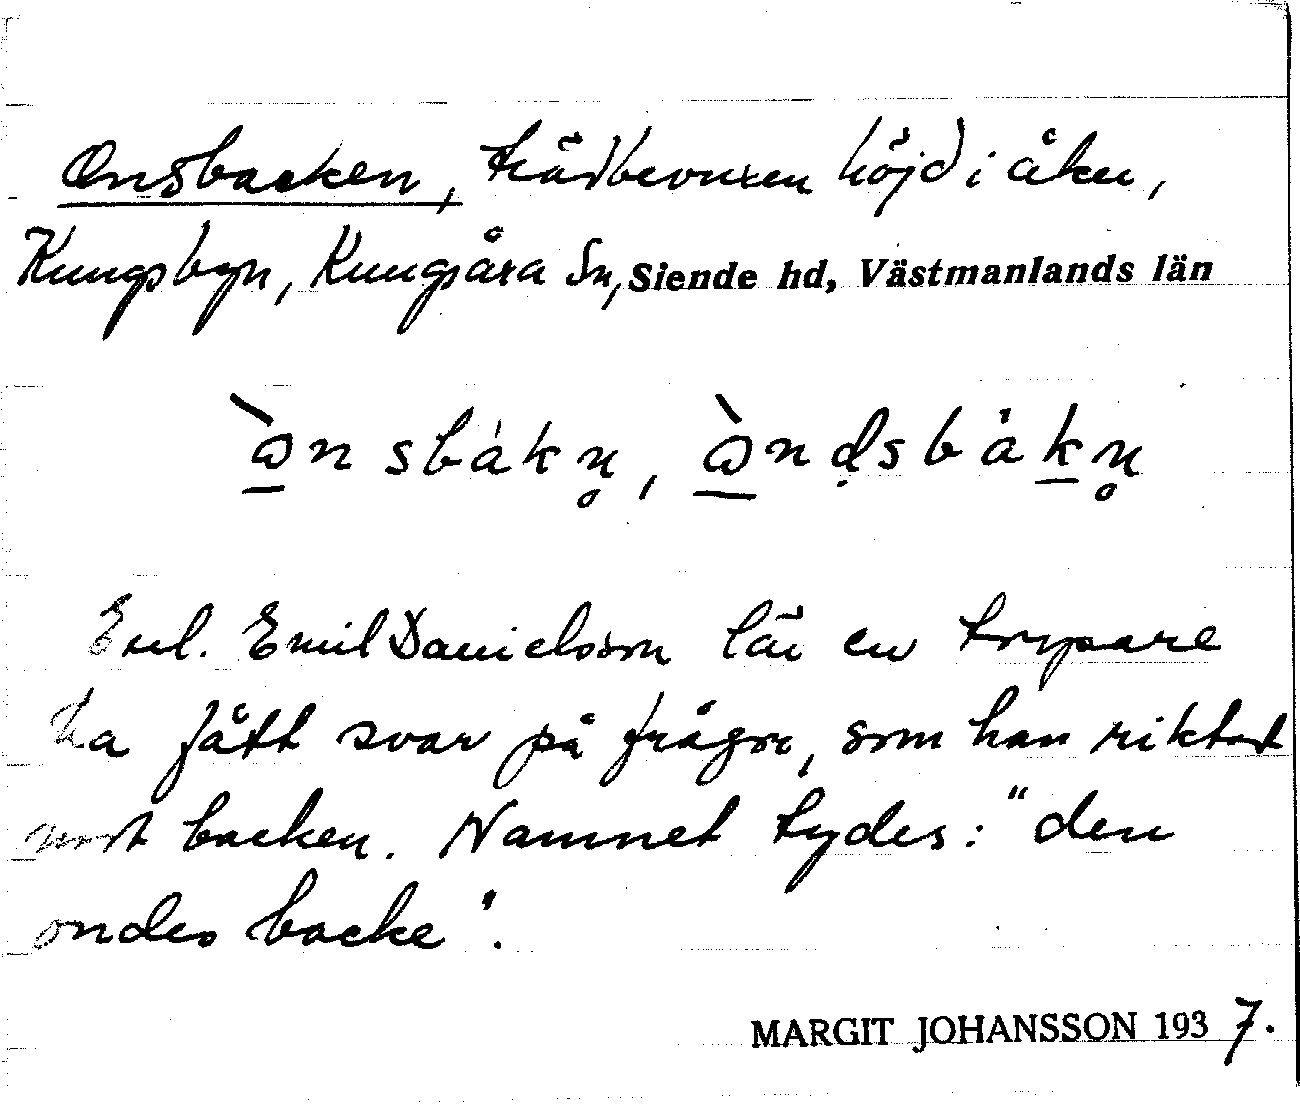 Onsbacken, trädbevuxen höjd i åker,
Kungsbyn, Kungsåra Sn, Siende hd, Västmanlands län
ὰ̱nsbákn̥, ὰ̱nḍsbáḵn̥
Enl. Emil Danielsson lär en torpare
ha fått svar på frågor, som han riktat
mot backen. Namnet tydes: "den
ondes backe".
MARGIT JOHANSSON 1937.